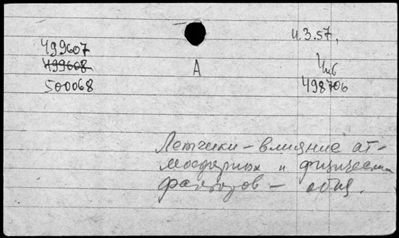 499607
и.3.57.
499608
А
500068
498706
Летчики – влияние ат-
мосферных и физически
факторов – общ.